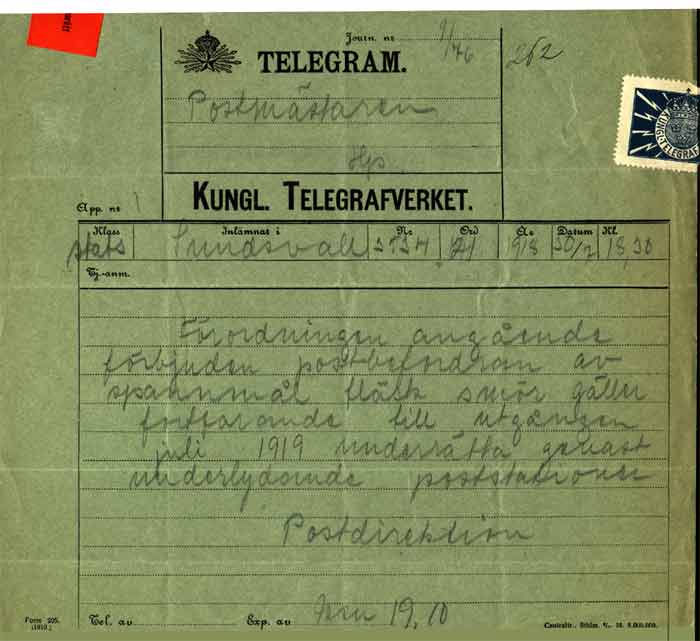 Journ. nr 9/76 262
TELEGRAM.
Postmästaren
Hps
KUNGL. TELEGRAFVERKET.
App. nr 1
Klass Inlämnat i Nr Ord År Datum Kl.
stats Sundsvall 21 1918 30/7 18,30
Tj.-anm.
Förordningen angående
förbjuden postbefordran av
spannmål fläsk smör gäller
fortfarande till utgången
juli 1919 underrätta genast
underlydande poststationer
Postdirektion
Tel. av Exp. av 19,10
Form 205.
(1910.)
KUNGL. TELEGRAF